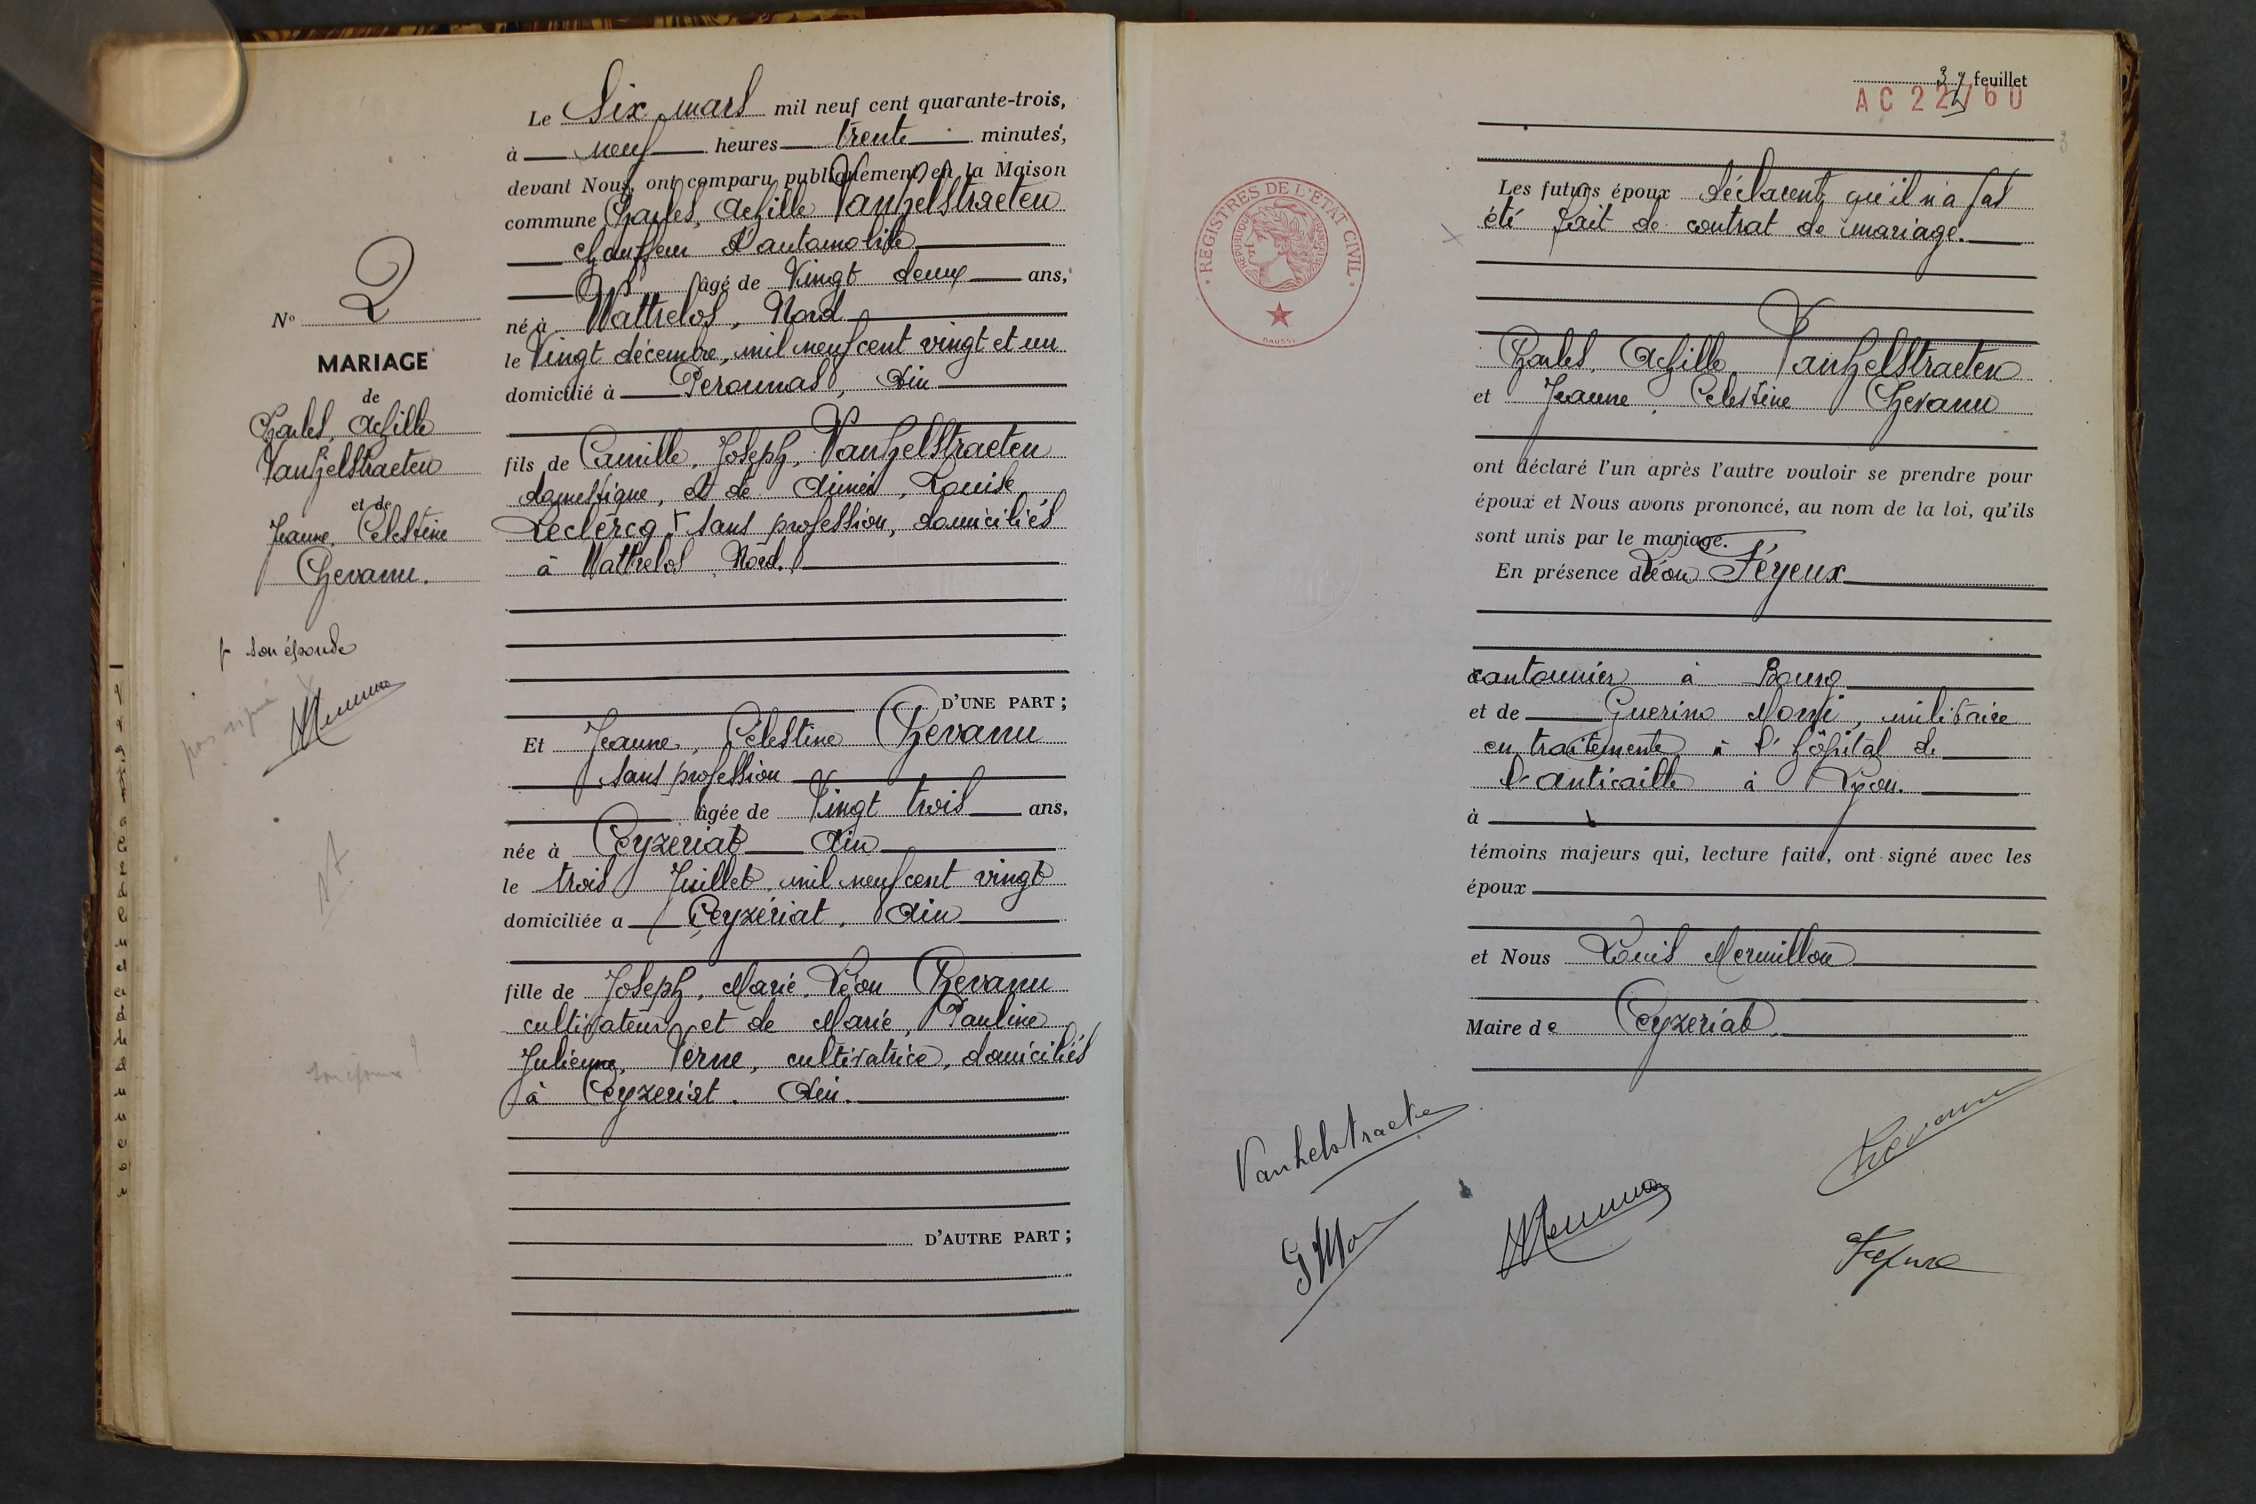 Le Six mars mil neuf cent quarante-trois,
à neuf heures trente minutes,
devant Nous, ont comparu publiquement en la Maison
commune Charles, Achille Vanhelstraeten
chauffeur d'automobile
âgé de Vingt deux ans,
né à Wattrelos, Nord
le Vingt décembre, mil neuf cent vingt et un
domicilié à Peronnas, Ain
fils de Camille, Joseph, Vanhelstraeten
domestique, et de Aimée, Louise
Leclercq, sans profession, domiciliés
à Wattrelos, Nord.
D'UNE PART ;
Et Jeanne, Célestine Chevanu
sans profession
âgée de Vingt trois ans,
née à Ceyzeriat Ain
le trois Juillet, mil neuf cent vingt
domiciliée a Ceyzériat, Ain
fille de Joseph, Marie, Léon Chevanu
cultivateur, et de Marie, Pauline
Julienne, Verne, cultivatrice, domiciliés
à Ceyzeriat. Ain.
D'AUTRE PART ;
No 2
MARIAGE
de
Charles, Achille
Vanhelstraeten
et de
Jeanne, Célestine
Chevanu.
son épouse
pas signé
3 feuillet
AC 22760
3
REGISTRES DE L'ETAT CIVIL
REPUBLIQUE FRANÇAISE
Les futurs époux déclarent qu'il n'a pas
été fait de contrat de mariage.
Charles, Achille, Vanhelstraeten
et Jeanne, Célestine Chevanu
ont déclaré l'un après l'autre vouloir se prendre pour
époux et Nous avons prononcé, au nom de la loi, qu'ils
sont unis par le mariage.
En présence de Léon Féyeux
cantonnier à Bourg
et de Guerino, militaire
en traitement à l'hôpital de
l'Anticaille à Lyon.
à
témoins majeurs qui, lecture faite, ont signé avec les
époux
et Nous Louis Mermillon
Maire de Ceyzeriat.
Vanhelstraete
Chevanu